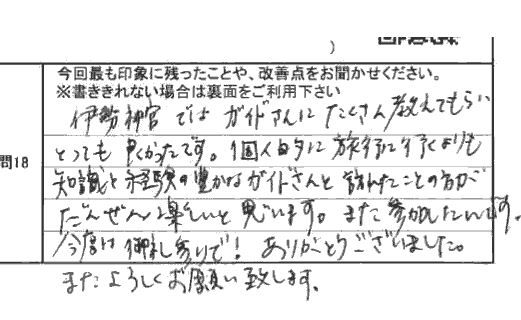 )
今回最も印象に残ったことや、改善点をお聞かせください。
※書ききれない場合は裏面をご利用下さい
問18
伊勢神宮ではガイドさんにたくさん教えてもらい
とっても良かったです。個人的に旅行に行くよりも
知識と経験の豊かなガイドさんと訪れたことの方が
だんぜん楽しいと思います。また参加したいです。
今度は御礼参りで!ありがとうございました。
またよろしくお願い致します。